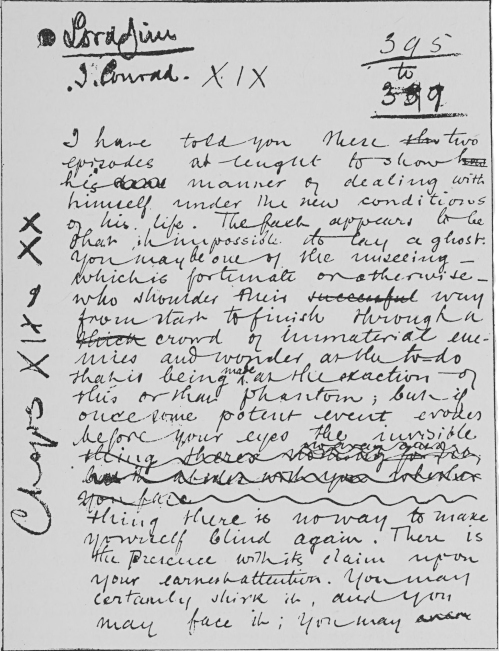 Lord Jim
J. Conrad. XIX
395
to
339
Chaps XIX & XX
I have told you these two
episodes at lenght to show
his manner of dealing with
himself under the new conditions
of his life. The fact appears to be
that it impossible to lay a ghost.
You may be one of the unseeing –
which is fortunate or otherwise –
who shoulder their successful way
from start to finish through a
thick crowd of immaterial ene-
mies and wonder at the to-do
that is being made at the exaction of
this or that phantom; but if
once some potent event evokes
before your eyes the invisible
thing there is nothing for
with you whether
you face
thing there is no way to make
yourself blind again. There is
the presence with its claim upon
your earnest attention. You may
certainly shirk it, and you
may face it; you may